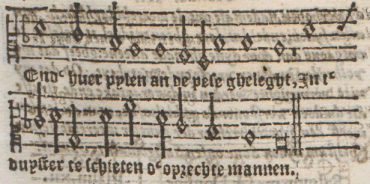 Endᵉ huer pylen an de pese gheleght, In tᶜ
duyster te schieten dᶜ oprechte mannen.